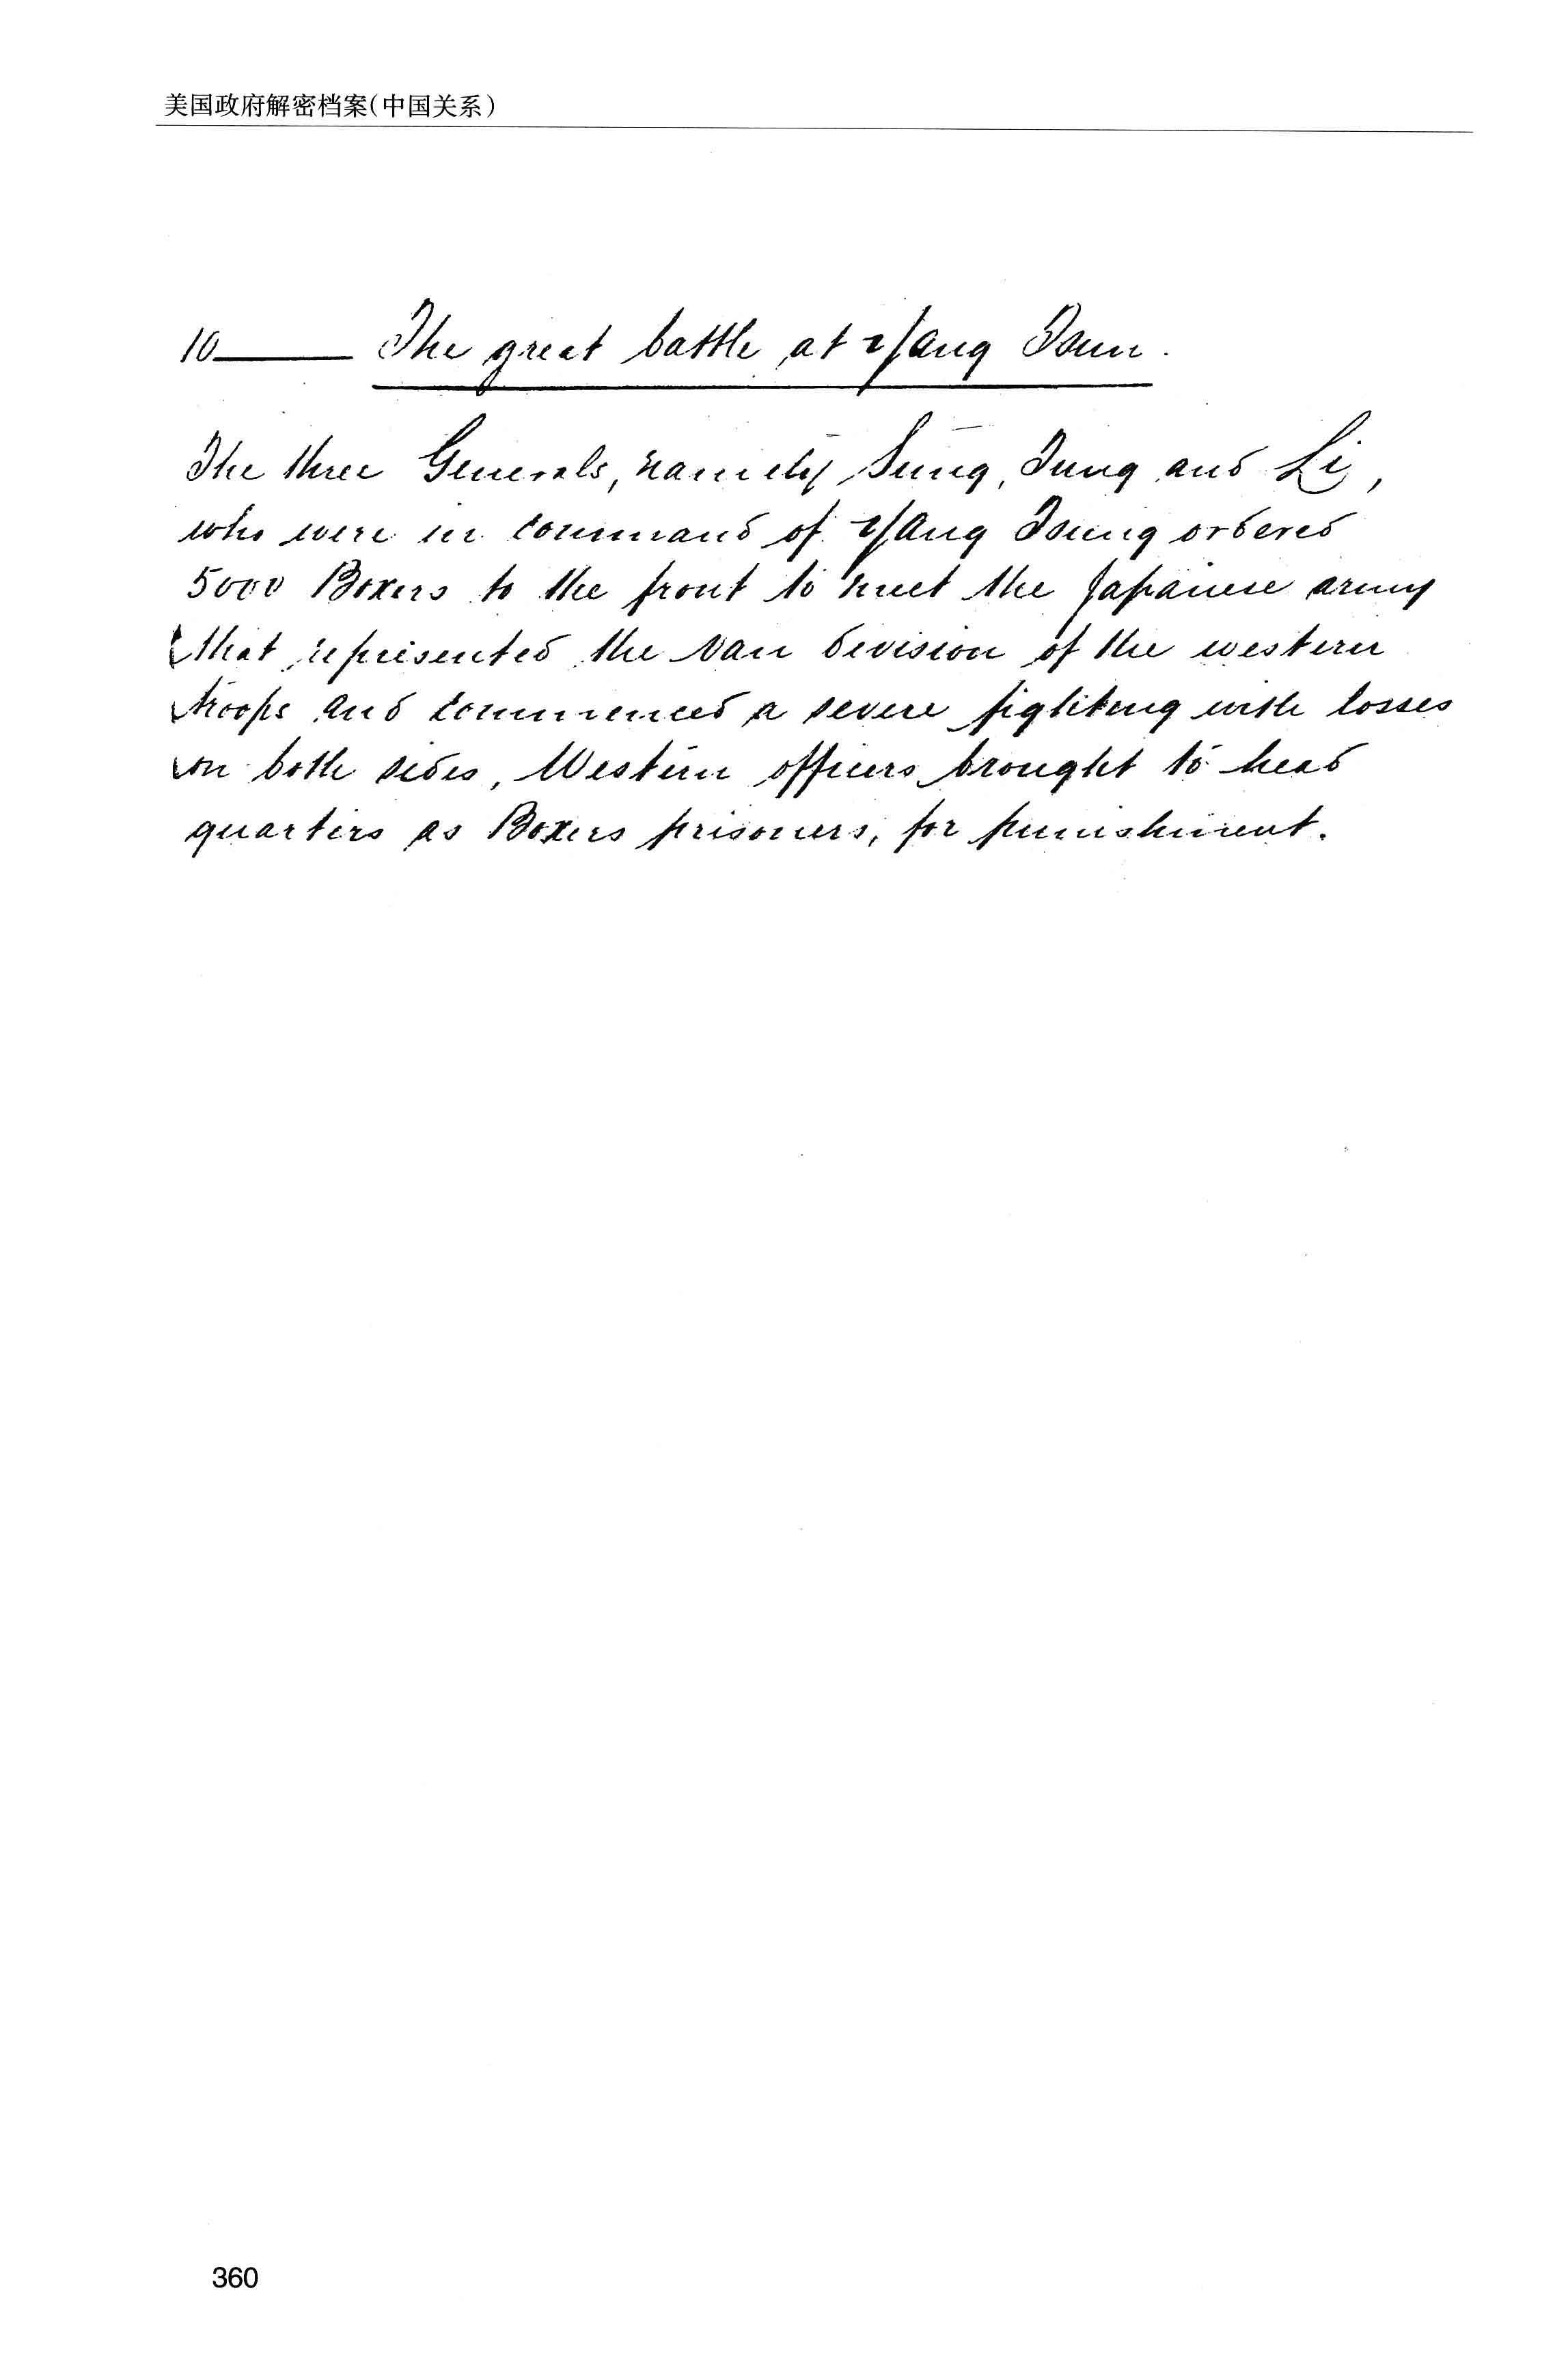 美国政府解密档案(中国关系)
10 — The great battle at Yang Tsun.
The three Generals, namely Sung, Tung and Li,
who were in command of Yang Tsung ordered
5000 Boxers to the front to meet the Japanese army
that represented the van division of the western
troops and commenced a severe fighting with losses
on both sides, Western officers brought to head
quarters as Boxers prisoners, for punishment.
360